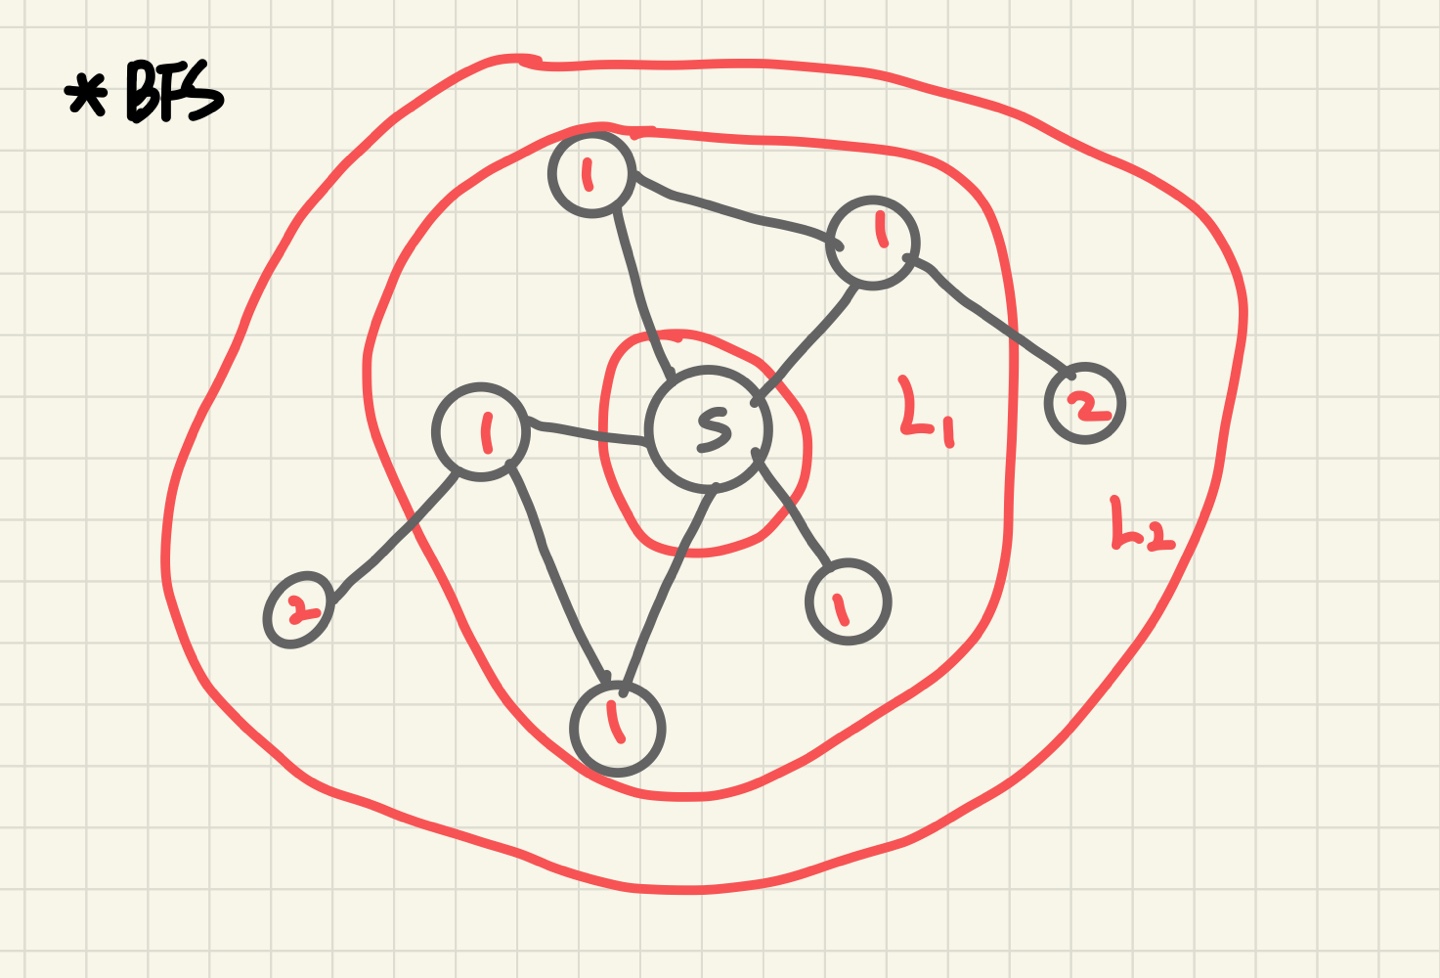 * BFS
1
1
S
1
L1
2
L2
2
1
1